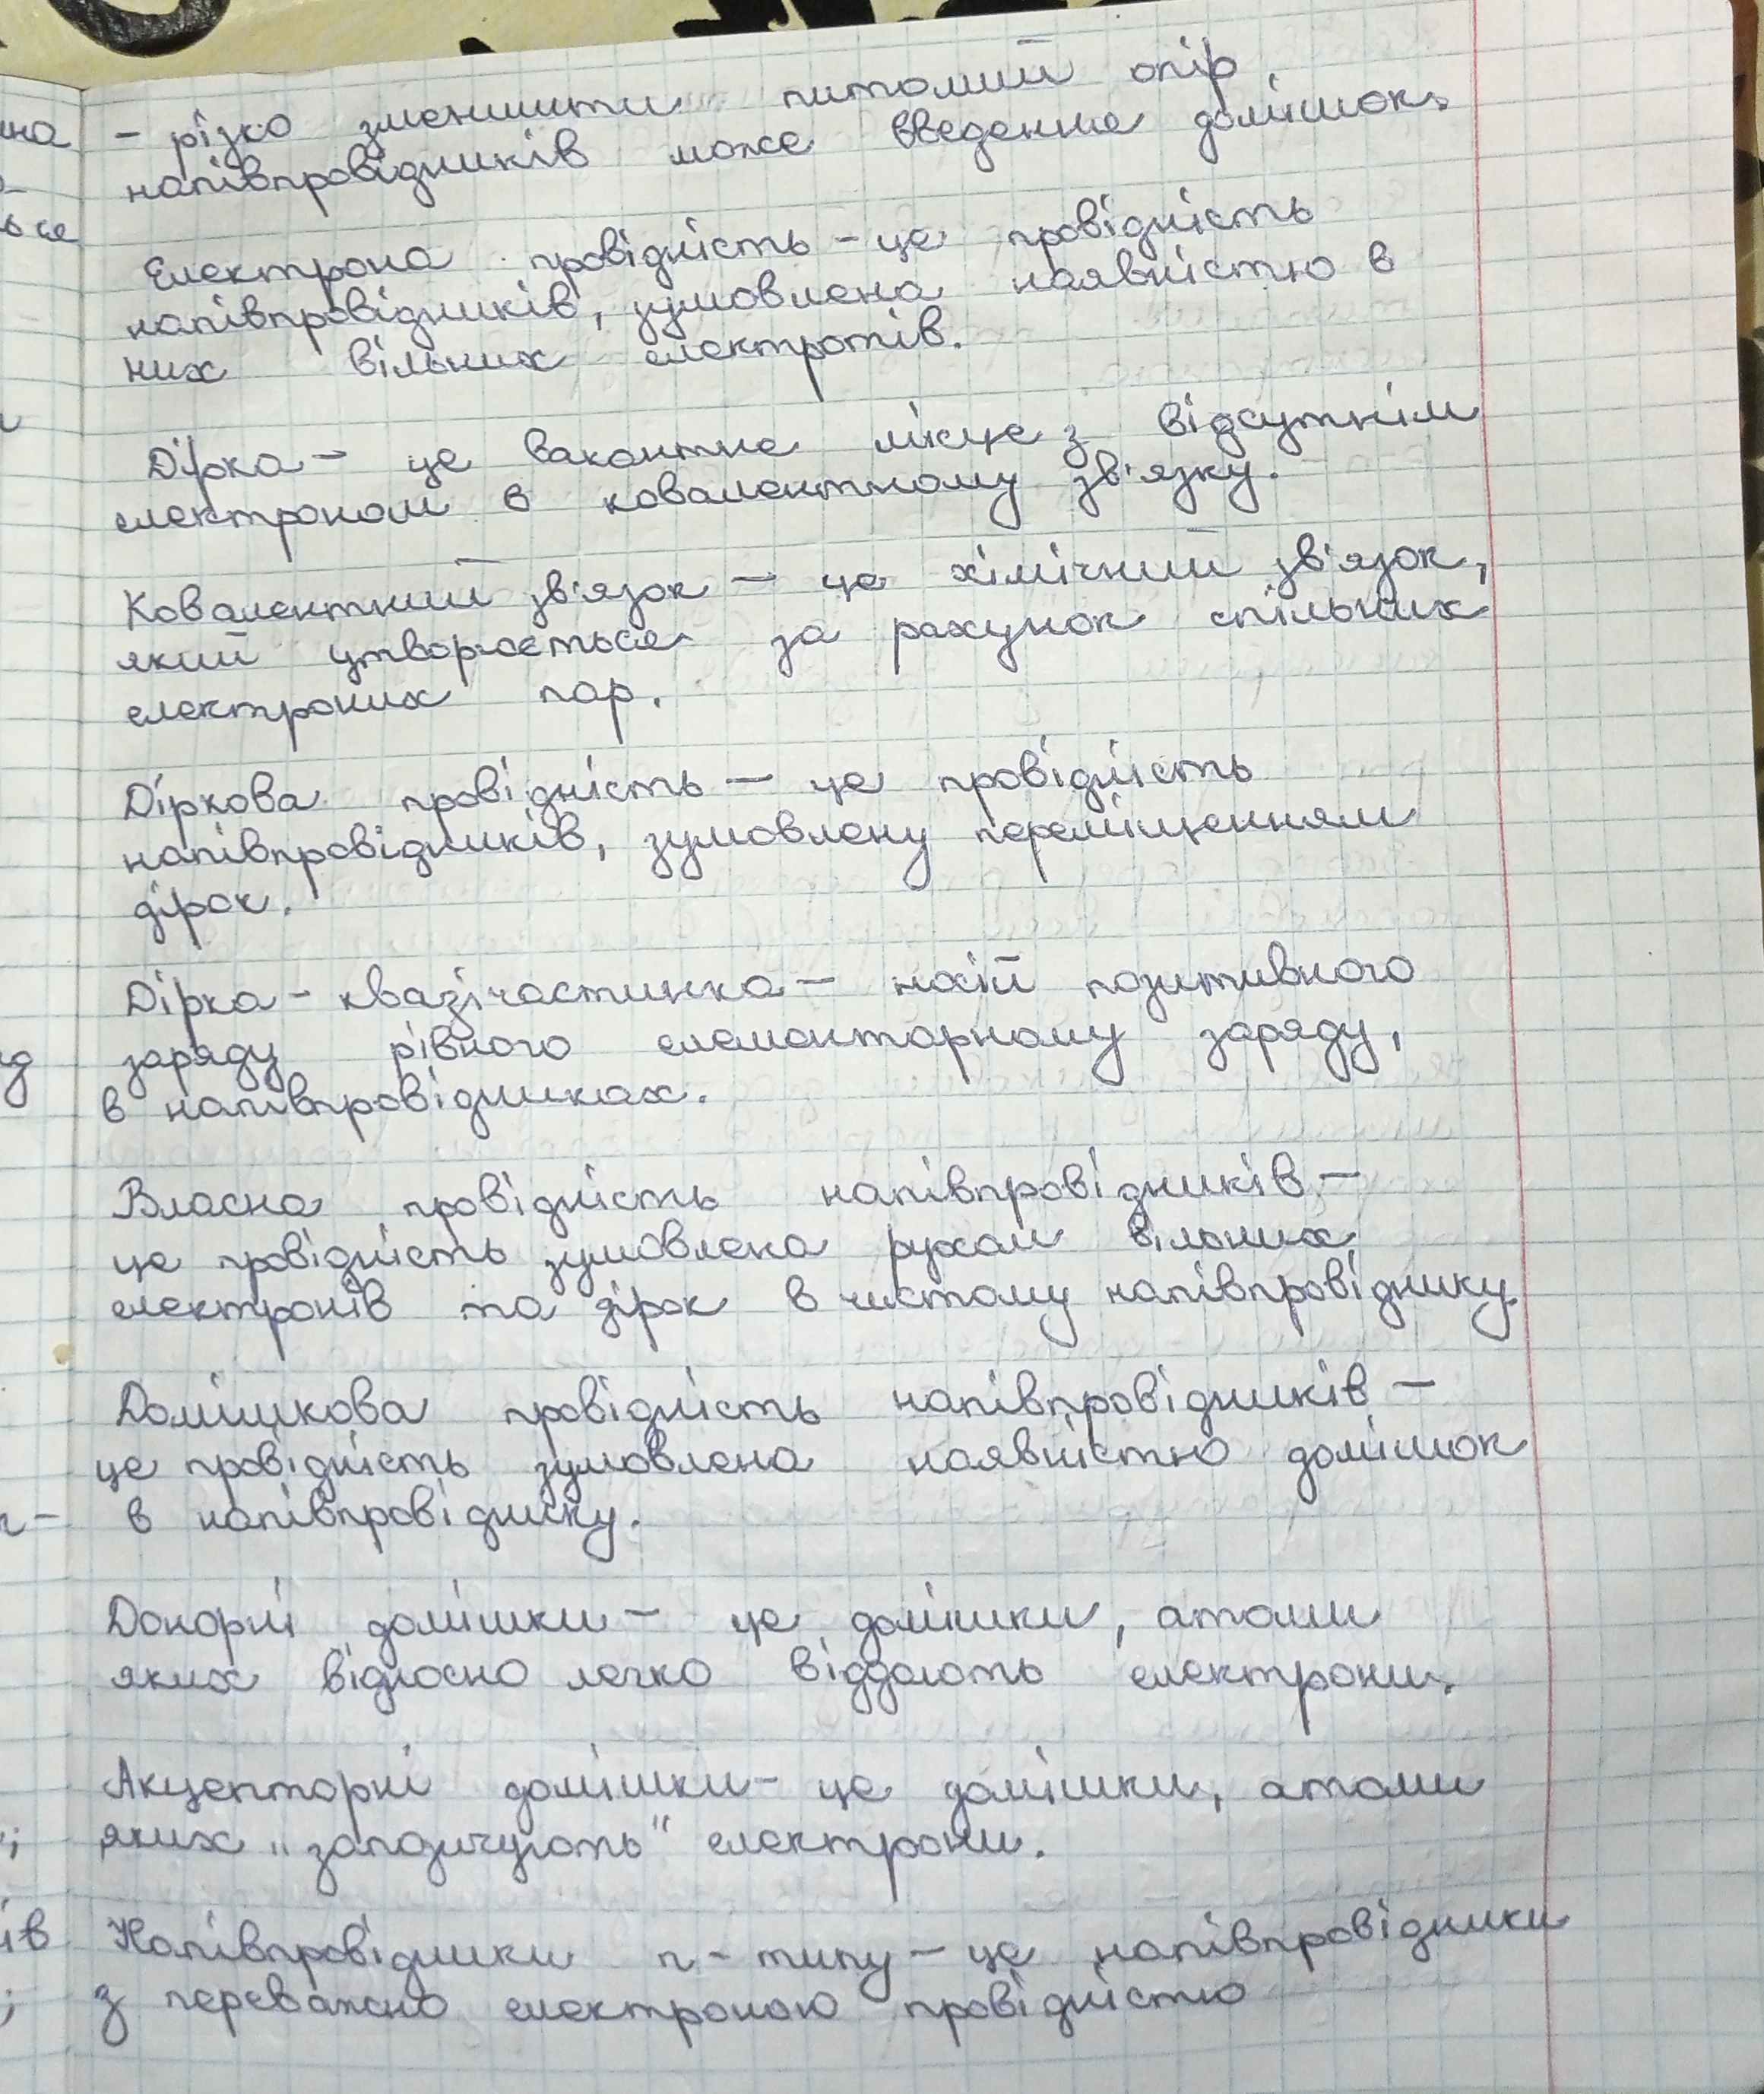 - різко зменшити питомий опір
напівпровідників може введення домішок.
Електрона провідність - це провідність
напівпровідників, зумовлена наявністю в
них вільних електронів.
Дірка - це вакантне місце з відсутнім
електроном в ковалентному зв'язку.
Ковалентний зв'язок - це хімічний зв'язок,
який утворюється за рахунок спільних
електроних пар.
Діркова провідність - це провідність
напівпровідників, зумовлену переміщенням
дірок.
Дірка - квазічастинка - носій позитивного
заряду рівного елементарному заряду,
в напівпровідниках.
Власна провідність напівпровідників -
це провідність зумовлена рухом вільних
електронів та дірок в чистому напівпровіднику.
Домішкова провідність напівпровідників -
це провідність зумовлена наявністю домішок
в напівпровіднику.
Донорні домішки - це домішки, атоми
яких відносно легко віддають електрони.
Акцепторні домішки - це домішки, атоми
яких „запозичують" електрони.
Напівпровідники n - типу - це напівпровідники
з переважно електроною провідністю